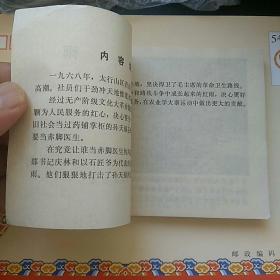 内容
一九六八年，太行山
高潮。社员们干劲冲天地
经过无产阶级文化大革
颗为人民服务的红心，决心
旧社会当过药铺掌柜的孙天
要当赤脚医生。
在究竟让谁当赤脚医生
部书记庆林和以石匠爷为代表
雨。他们狠狠地打击了孙天
，坚决捍卫了毛主席的革命卫生路线。
和路线斗争中成长起来的红雨，决心更好
务，在农业学大寨运动中做出更大的贡献。
邮政编码